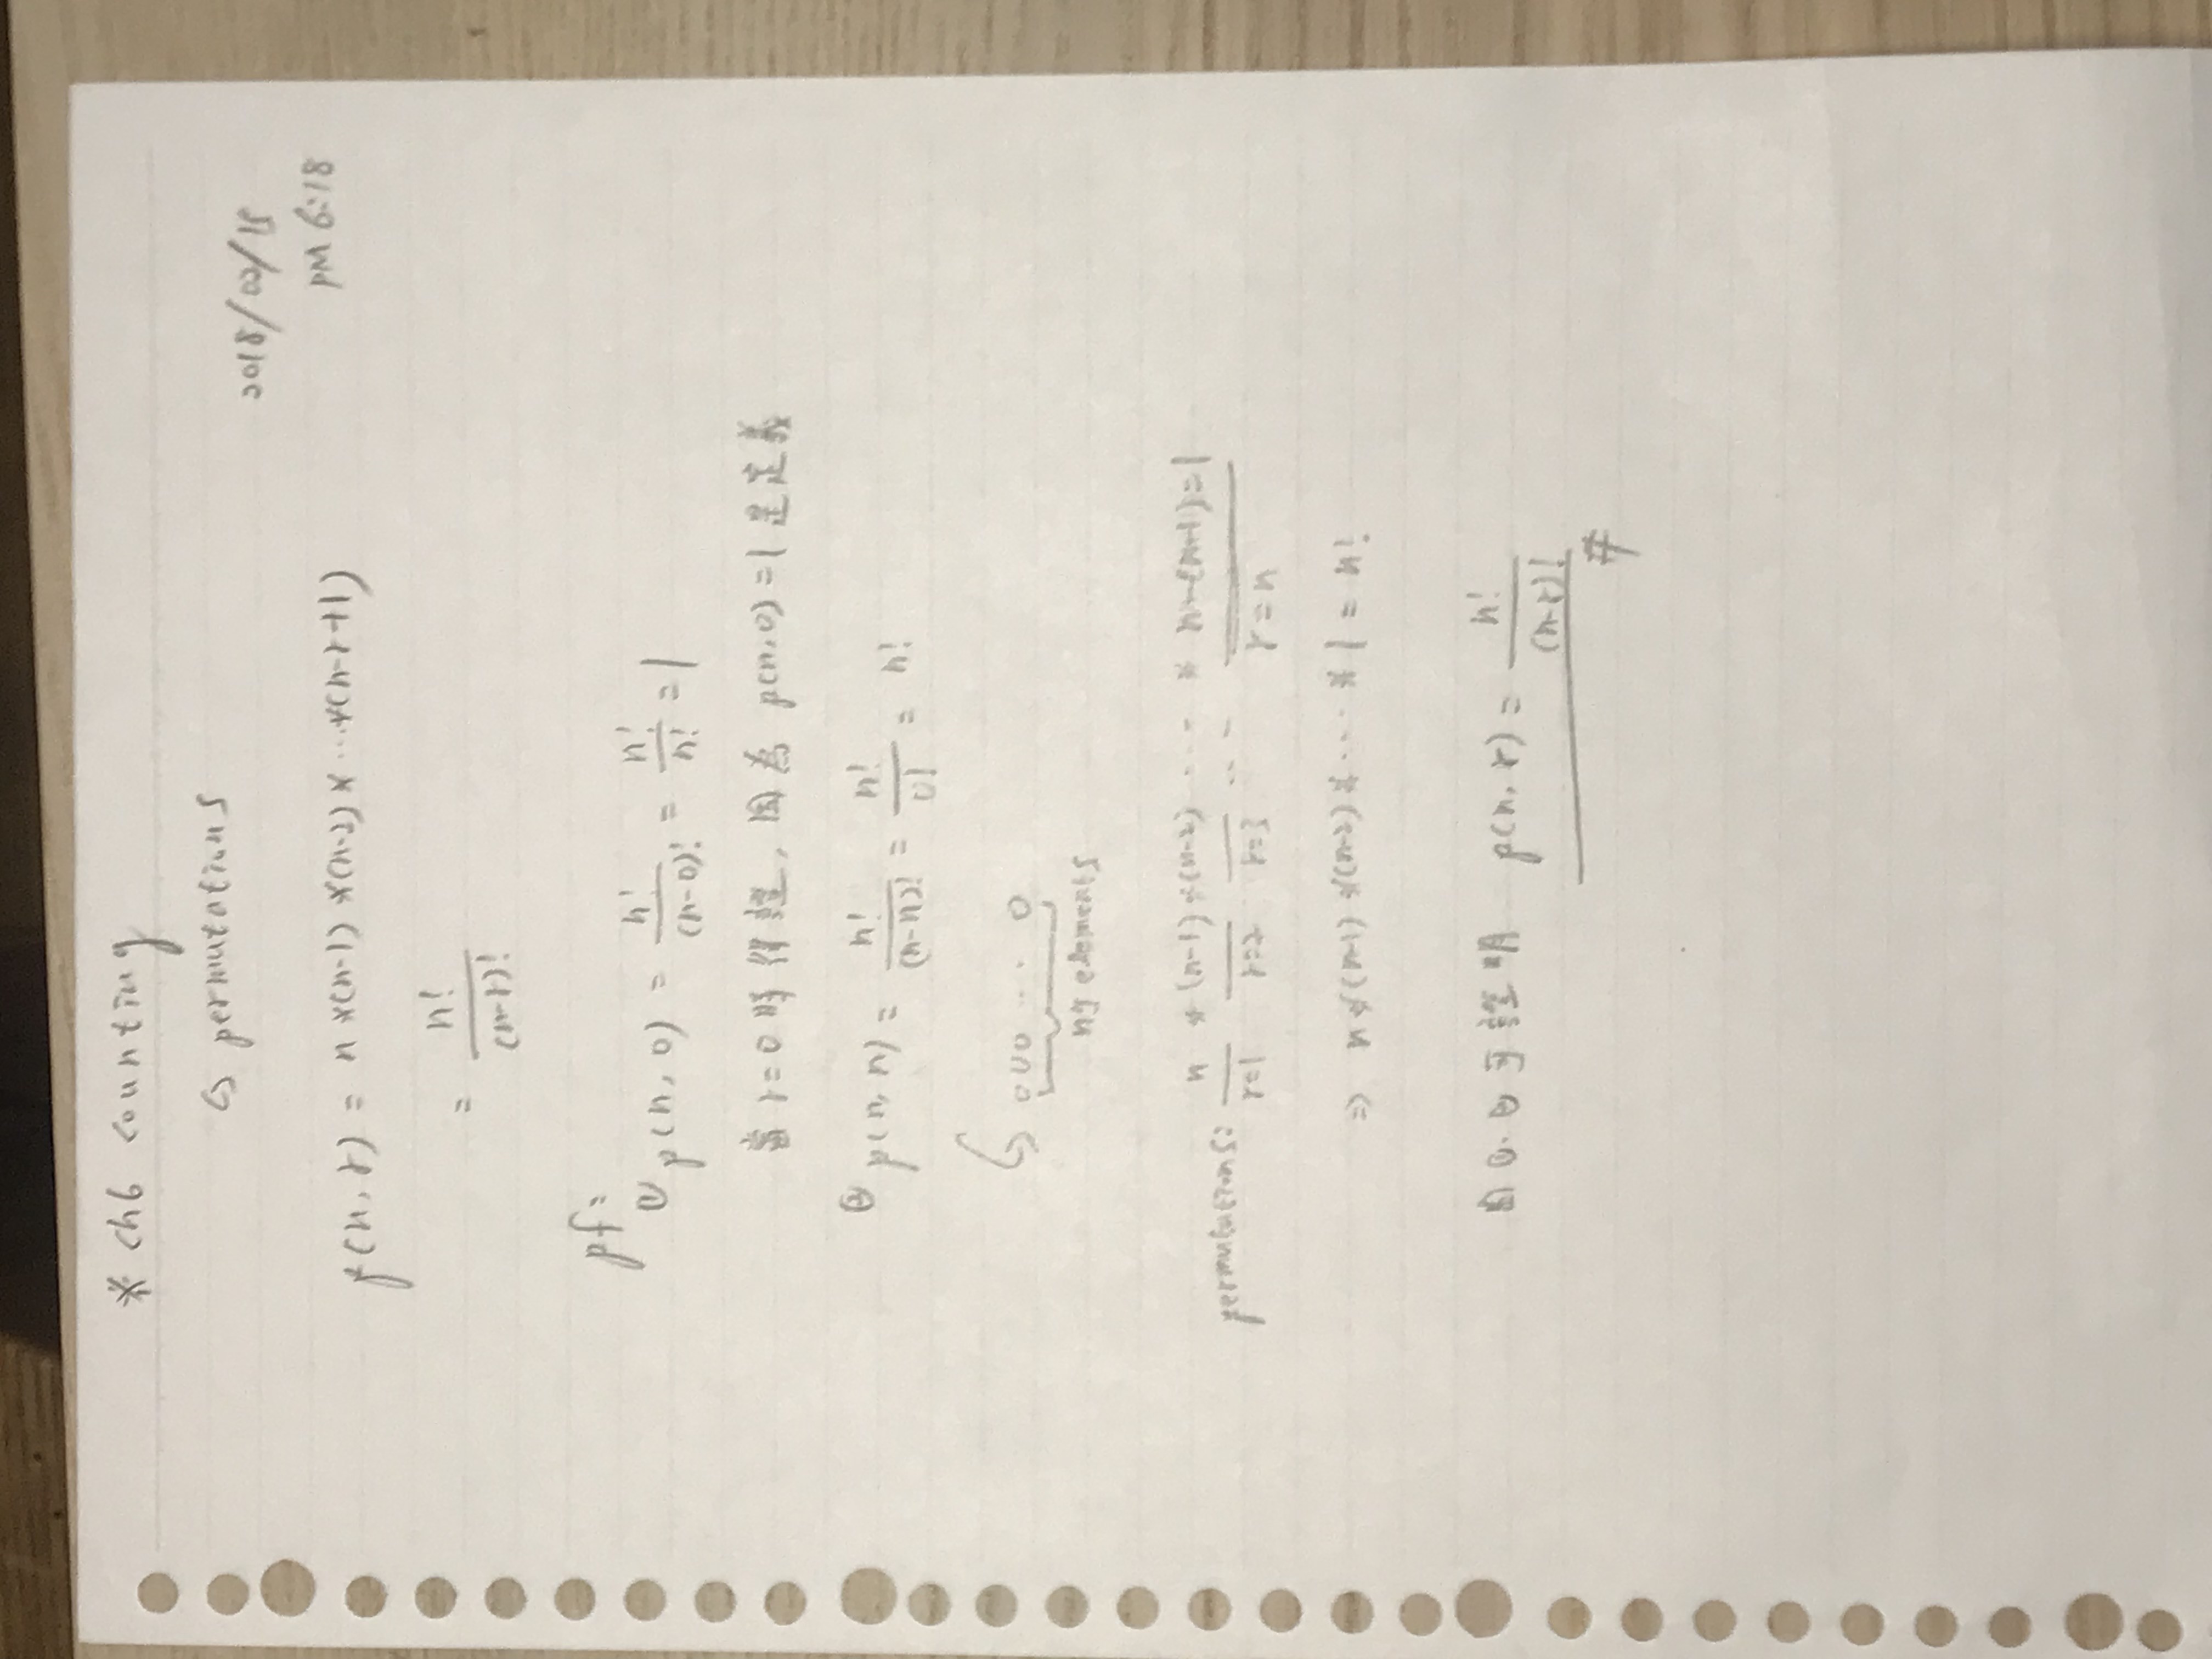 * ch6 counting
↳ permutations
2018/02/15
PM 6:18
p(n, r) = n *(n-1) *(n-2) * ... *(n-r+1)
= n! / (n-r)!
pf:
① p(n, 0) = n! / (n-0)! = n! / n! = 1
當 r=0 時得證, 因為 p(n,0)=1 是定義
② p(n, n) = n! / (n-n)! = n! / 0! = n!
↳ 000 ... 0
elements
permutations: n * (n-1) * (n-2) ... * n-(n-1)=1
r=1 r=2 r=3 ... r=n
⇒ n *(n-1) *(n-2) * ... * 1 = n!
因 ①. ② 可證明 p(n, r) = n! / (n-r)!
#